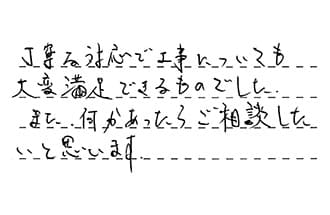 丁寧な対応で工事についても
大変満足できるものでした.
また.何かあったらご相談した
いと思います.